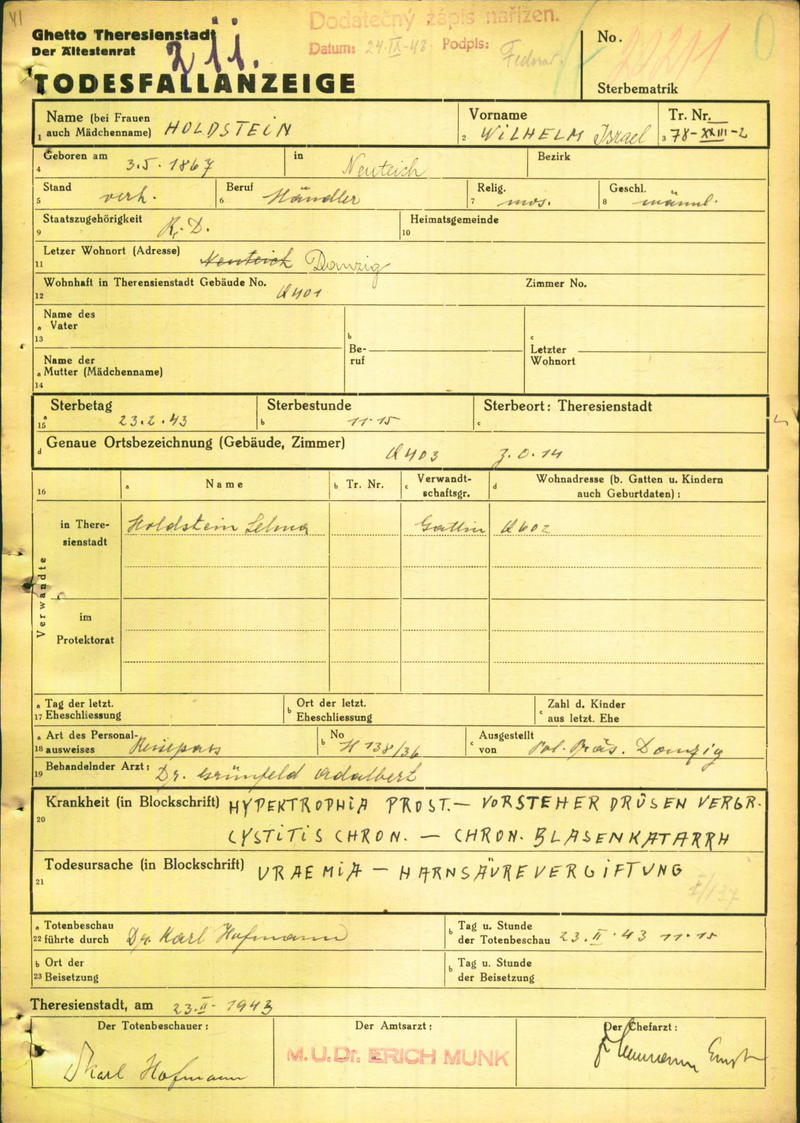 VI
Ghetto Theresienstadt
Der Ältestenrat
TODESFALLANZEIGE
Dodatečný zápis nařízen.
Datum: 24/IX-48 Podpis:
No.
Sterbematrik
Name (bei Frauen auch Mädchenname) HOLDSTEIN
Vorname WILHELM Israel
Tr. Nr. 78-XXIII-2
Geboren am 3.5.1867 in Neuteich Bezirk
Stand verh. Beruf Händler Relig. mos. Geschl. männl.
Staatszugehörigkeit Heimatsgemeinde
Letzer Wohnort (Adresse) Neuteich Danzig
Wohnhaft in Therensienstadt Gebäude No. Q401 Zimmer No.
Name des Vater
Name der Mutter (Mädchenname)
Be-ruf
Letzter Wohnort
Sterbetag 23.2.43 Sterbestunde 11.15 Sterbeort: Theresienstadt
Genaue Ortsbezeichnung (Gebäude, Zimmer) Q403 Z.O.14
Verwandte
Name Tr. Nr. Verwandt-schaftsgr. Wohnadresse (b. Gatten u. Kindern auch Geburtdaten):
in There-sienstadt Holdstein Selma Gattin Q602
im Protektorat
Tag der letzt. Eheschliessung Ort der letzt. Eheschliessung Zahl d. Kinder aus letzt. Ehe
Art des Personal-ausweises Reisepass No H 138/36 Ausgestellt von Pol. Präs. Danzig
Behandelnder Arzt: Dr. Grünfeld Adalbert
Krankheit (in Blockschrift) HYPERTROPHIA PROST. — VORSTEHER DRÜSEN VERGR.
CYSTITIS CHRON. — CHRON. BLASENKATARRH
Todesursache (in Blockschrift) URAEMIA — HARNSÄUREVERGIFTUNG
Totenbeschau führte durch Dr. Karl Hofmann Tag u. Stunde der Totenbeschau 23.II.43 11.15
Ort der Beisetzung Tag u. Stunde der Beisetzung
Theresienstadt, am 23.II-1943
Der Totenbeschauer: Der Amtsarzt: Der Chefarzt:
Karl Hofmann M.U.Dr. ERICH MUNK